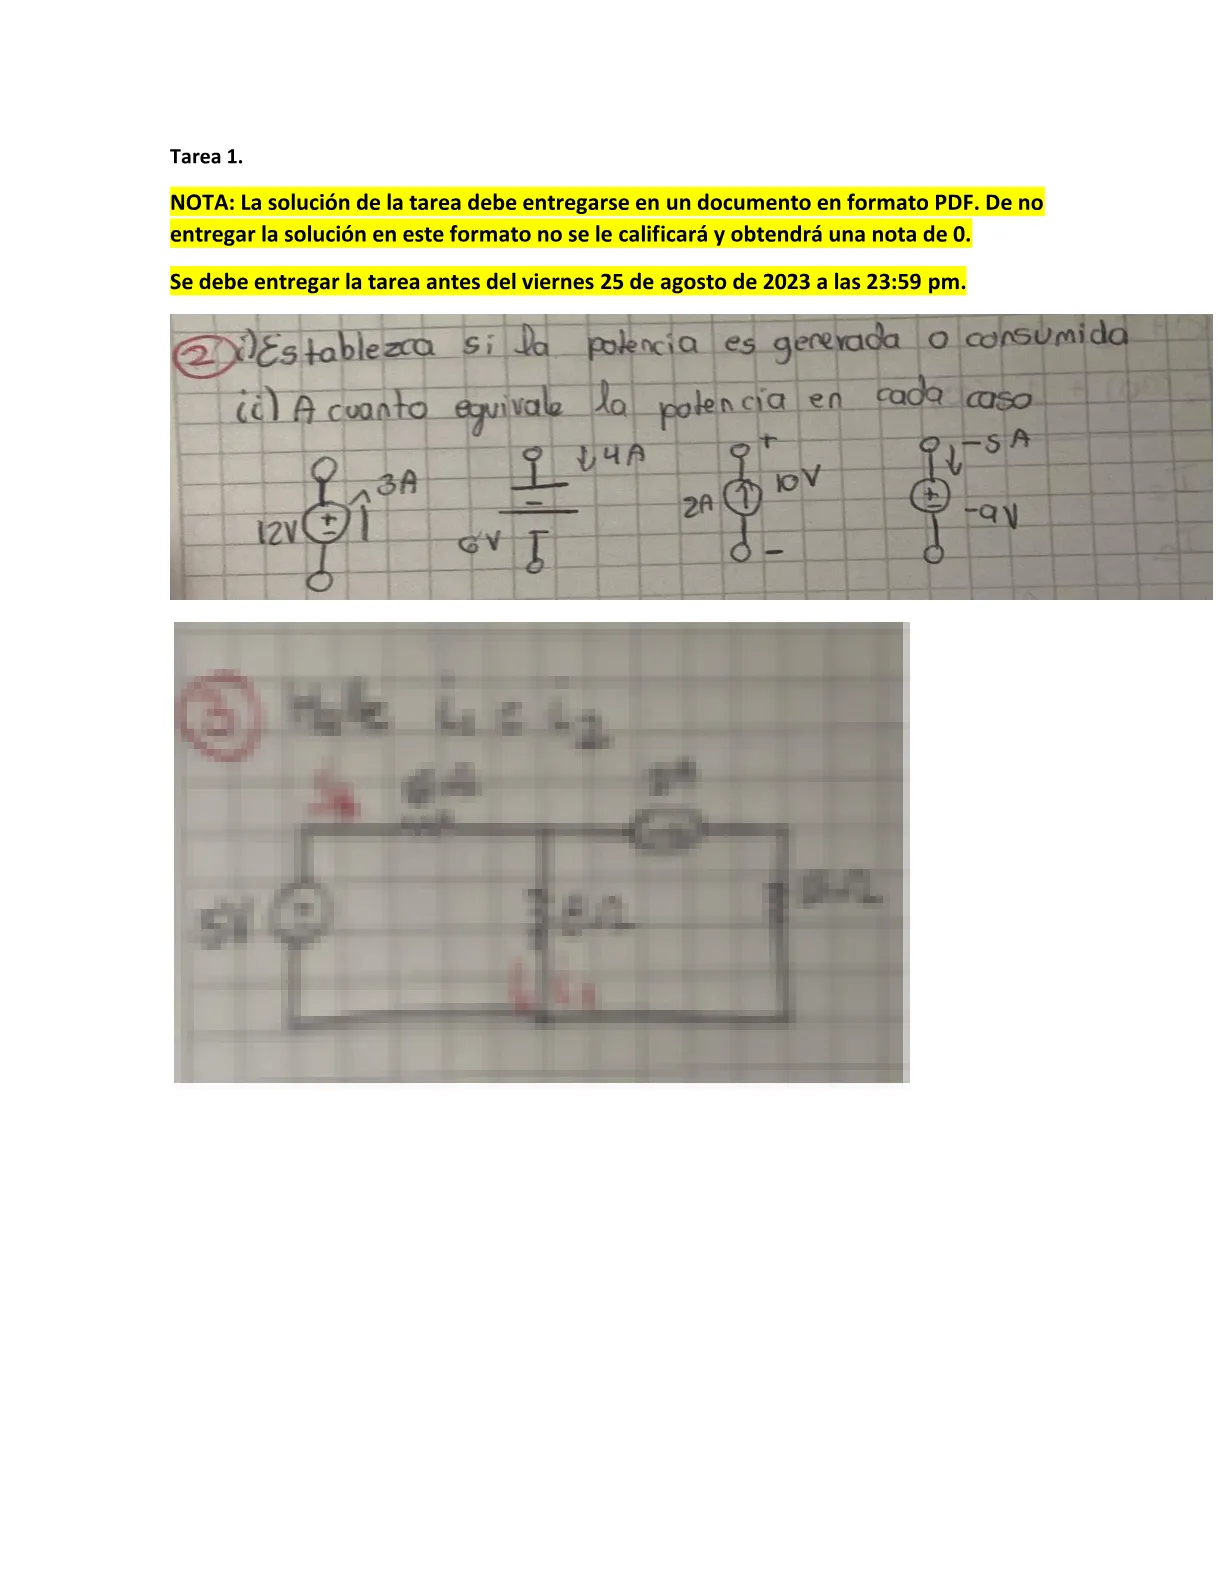 Tarea 1.
NOTA: La solución de la tarea debe entregarse en un documento en formato PDF. De no
entregar la solución en este formato no se le calificará y obtendrá una nota de 0.
Se debe entregar la tarea antes del viernes 25 de agosto de 2023 a las 23:59 pm.
2 i) Establezca si la potencia es generada o consumida
ii) A cuanto equivale la potencia en cada caso
12V + - 3A
6V - 4A
2A + 10V -
+ - -5 A -9V
3
5V
8Ω